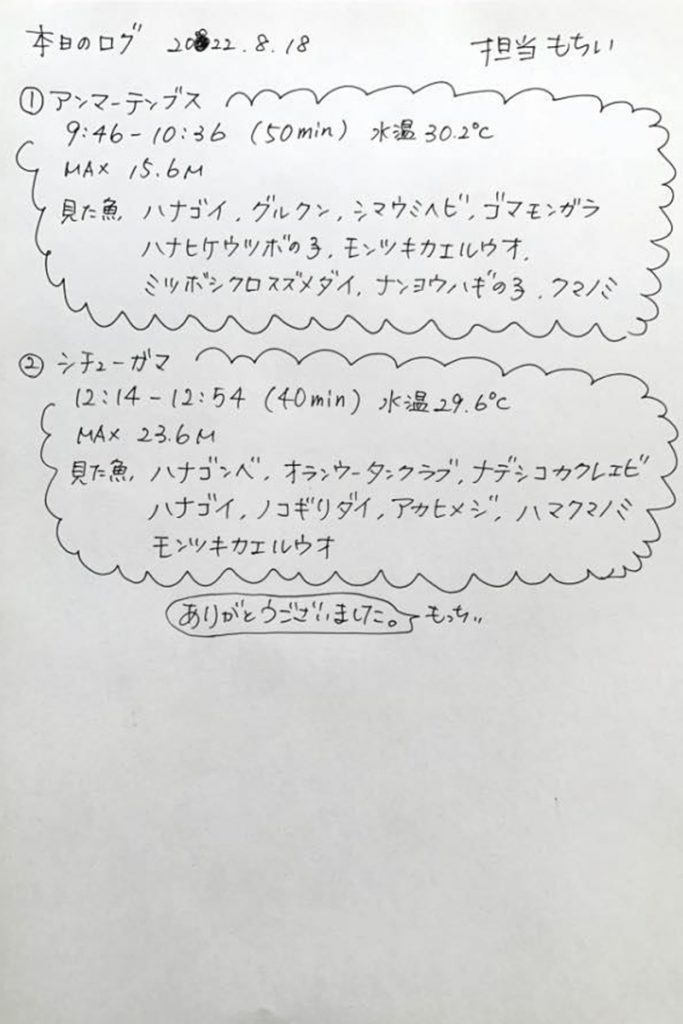 本日のログ 2022.8.18 担当 もちい
① アンマーテンブス
9:46-10:36 (50min) 水温30.2℃
MAX 15.6M
見た魚 ハナゴイ, グルクン, シマウミヘビ, ゴマモンガラ
ハナヒゲウツボの子, モンツキカエルウオ,
ミツボシクロスズメダイ, ナンヨウハギの子, クマノミ
② シチューガマ
12:14-12:54 (40min) 水温29.6℃
MAX 23.6M
見た魚 ハナゴンベ, オランウータンクラブ, ナデシコカクレエビ
ハナゴイ, ノコギリダイ, アカヒメジ, ハマクマノミ
モンツキカエルウオ
ありがとうございました。 もっちぃ